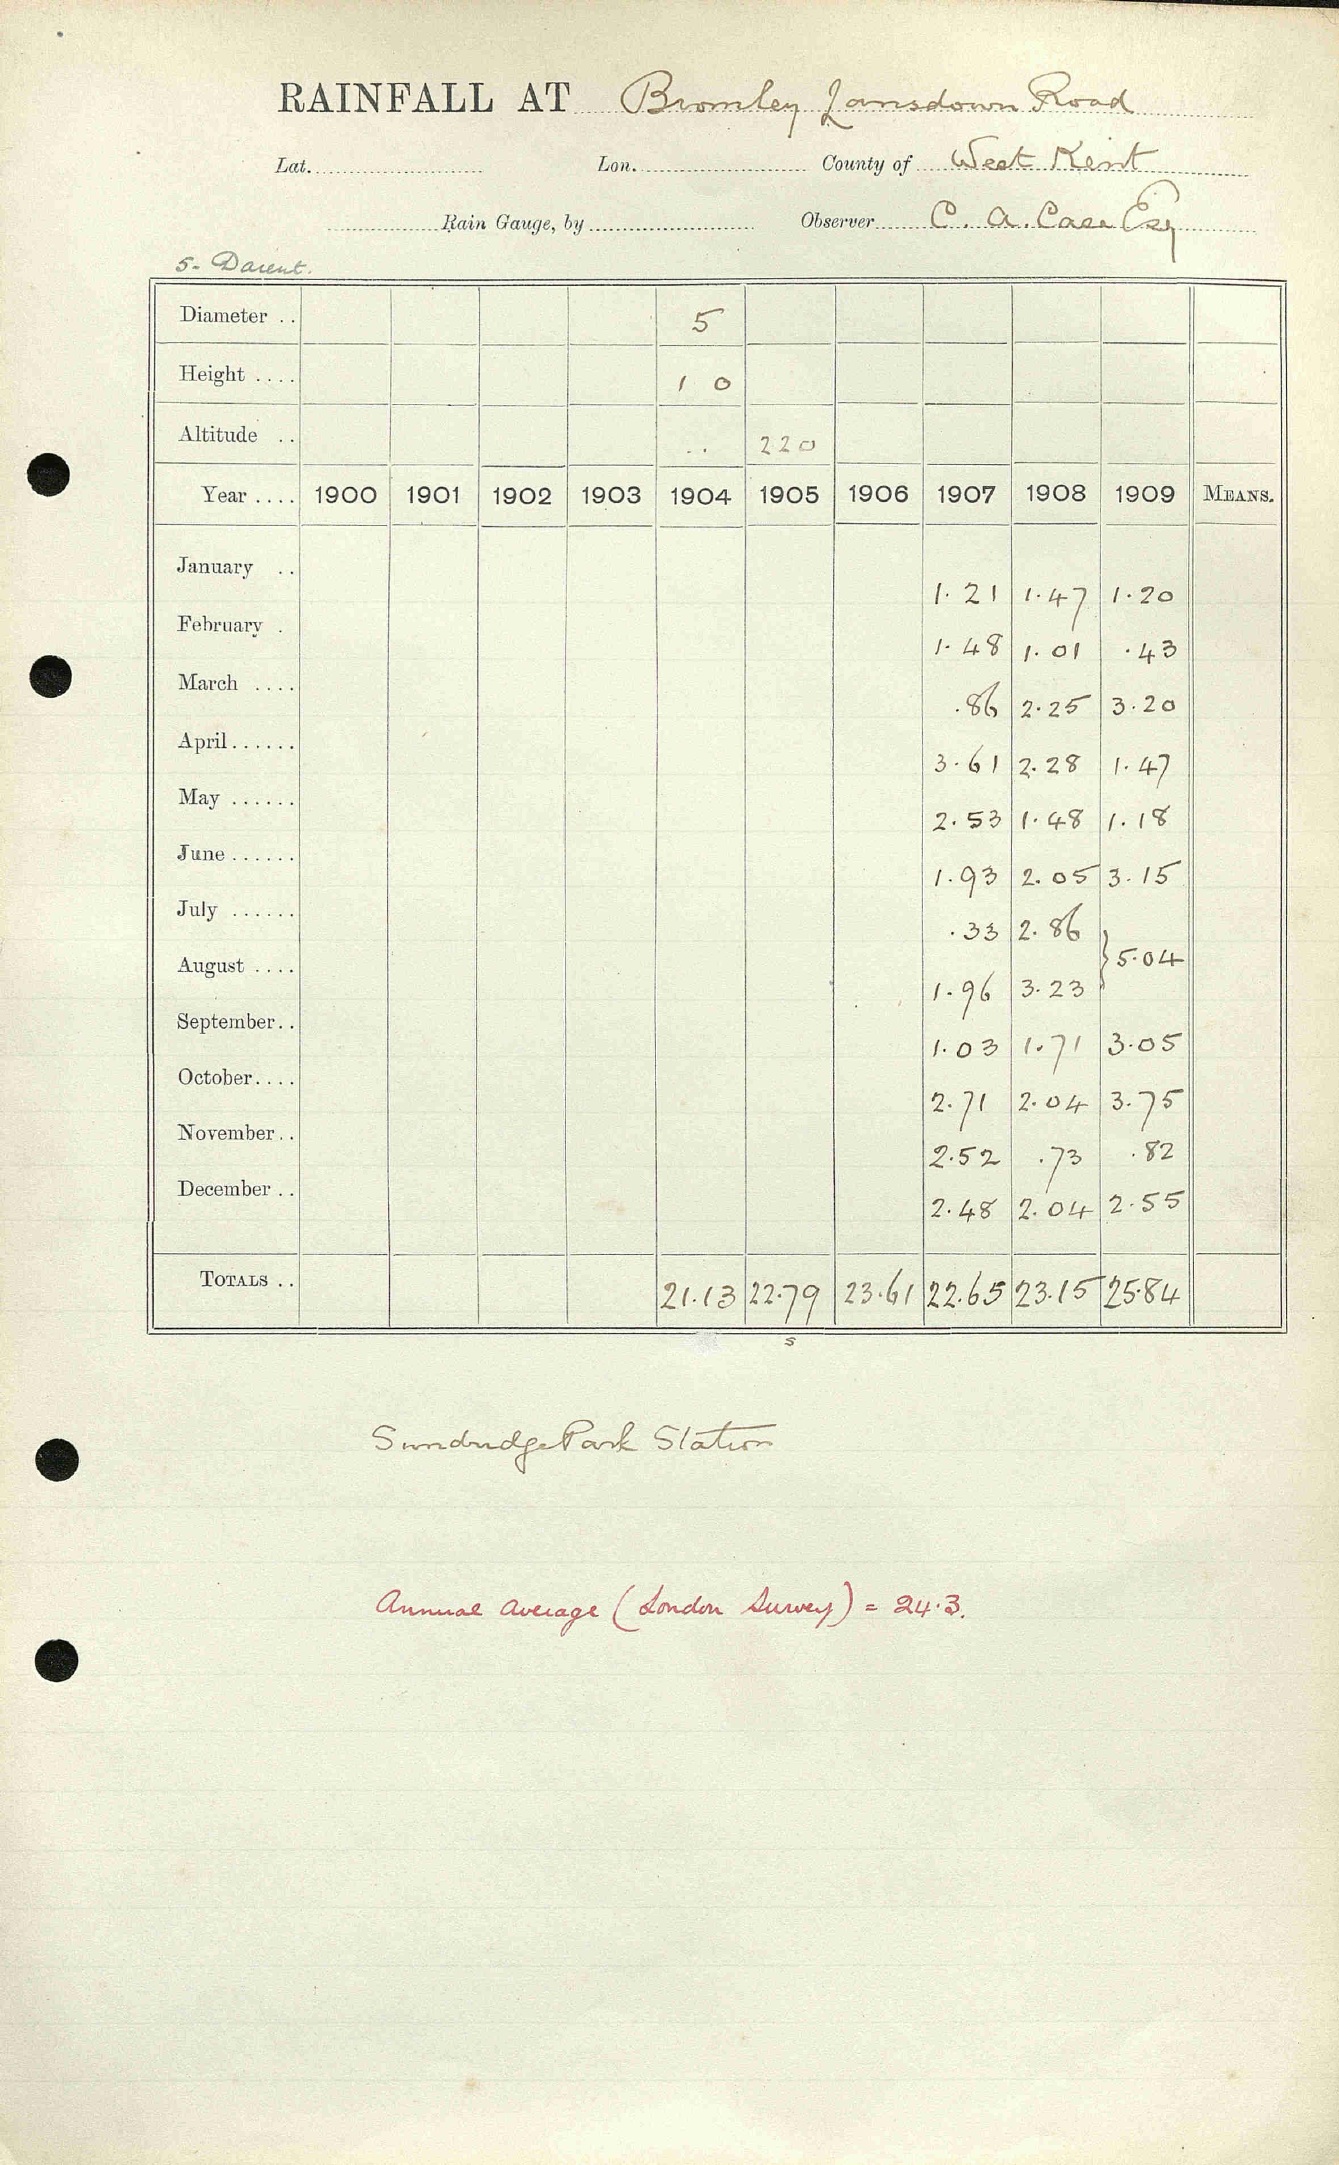 RAINFALL AT Bromley Lansdown Road
Lat. Lon. County of West Kent
Rain Gauge, by Observer C. A. Case Esq
5- Darent.
Diameter .. 5
Height .... 1 0
Altitude .. .. 220
Year .... 1900 1901 1902 1903 1904 1905 1906 1907 1908 1909 MEANS.
January .. 1.21 1.47 1.20
February . 1.48 1.01 .43
March .... .86 2.25 3.20
April...... 3.61 2.28 1.47
May ...... 2.53 1.48 1.18
June ...... 1.93 2.05 3.15
July ...... .33 2.86
} 5.04
August .... 1.96 3.23
September.. 1.03 1.71 3.05
October.... 2.71 2.04 3.75
November.. 2.52 .73 .82
December .. 2.48 2.04 2.55
TOTALS .. 21.13 22.79 23.61 22.65 23.15 25.84
s
Sundridge Park Station
Annual average (London Survey) = 24.3.